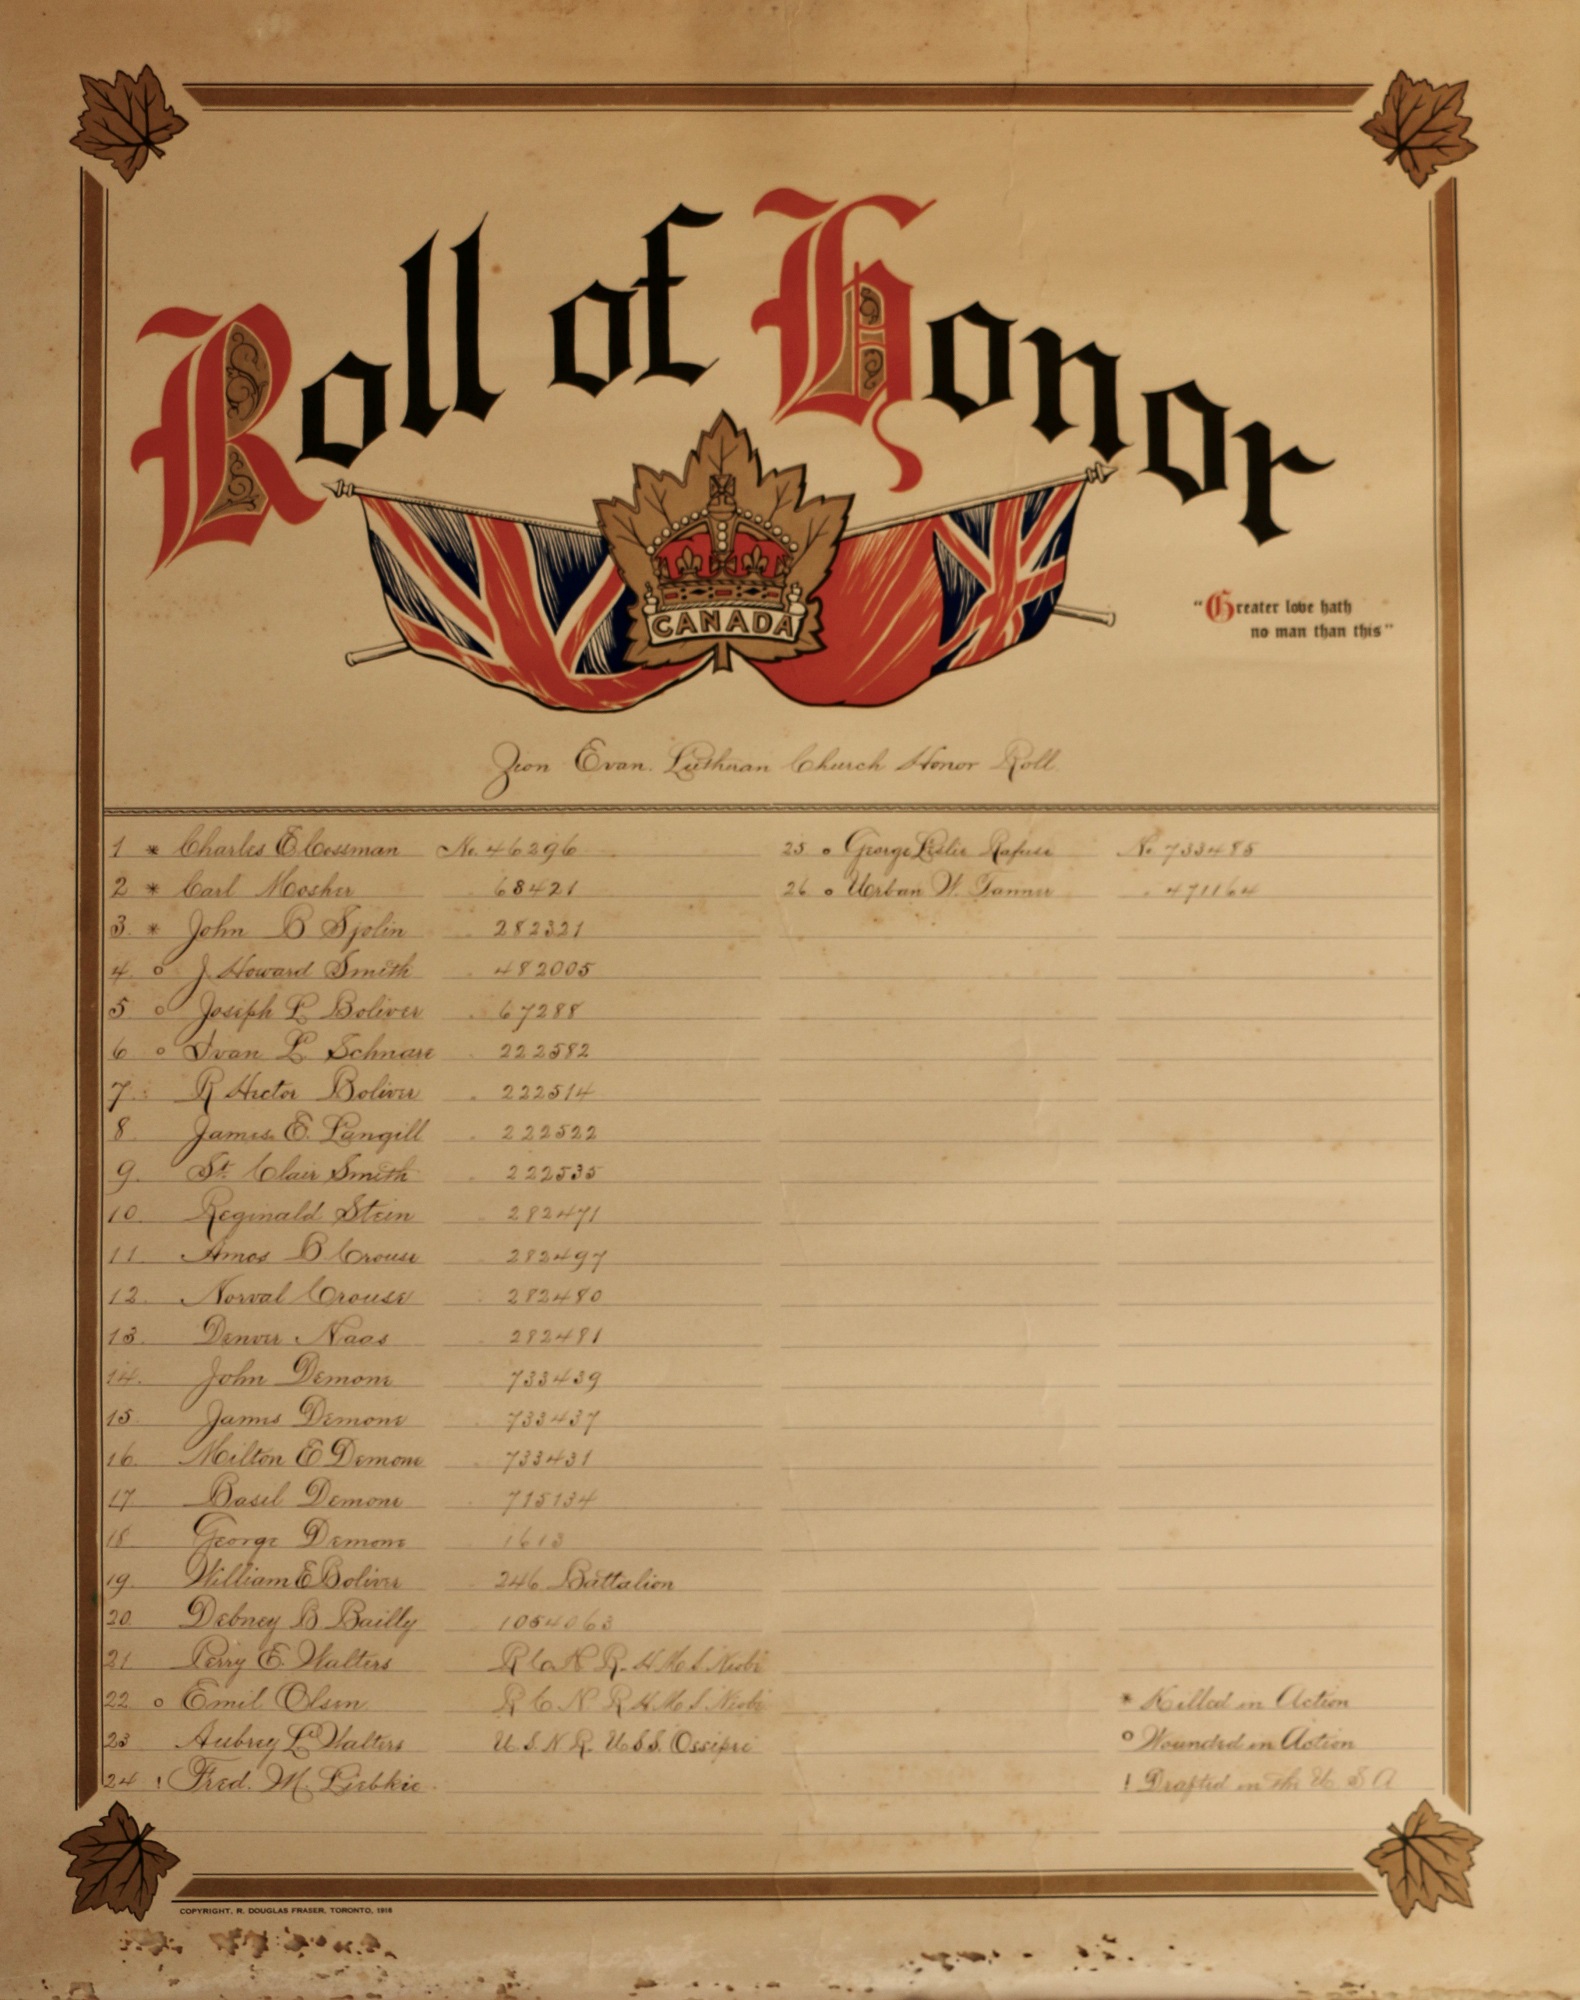 Roll of Honor
CANADA
"Greater love hath
no man than this"
Zion Evan. Lutheran Church Honor Roll
1 * Charles E Cossman No. 46296
2 * Carl Mosher 68421
3. * John B Sjolin 282321
4. o J. Howard Smith 482005
5 o Joseph L Boliver 67288
6 o Ivan L. Schnare 222582
7. R Hector Boliver 222514
8. James E. Langill 222522
9. St. Clair Smith 222535
10. Reginald Stein 282471
11. Amos B. Crouse 282497
12. Norval Crouse 282480
13. Denver Naas 282481
14. John Demone 733439
15. James Demone 733437
16. Milton E Demone 733431
17 Basil Demone 715134
18. George Demone 1613
19. William E Boliver 246 Battalion
20. Debney B Bailly 1054063
21 Perry E. Walters R C N R. H M S Niobe
22 o Emil Olsen R C N R H M S Niobe
23 Aubrey L Walters U S N R. U S S. Ossipee
24 ! Fred. M. Liebkie
25 o George Leslie Rafuse No 733485
26 o Urban W. Tanner 471164
* Killed in Action
o Wounded in Action
! Drafted in the U S A
COPYRIGHT, R. DOUGLAS FRASER, TORONTO, 1916